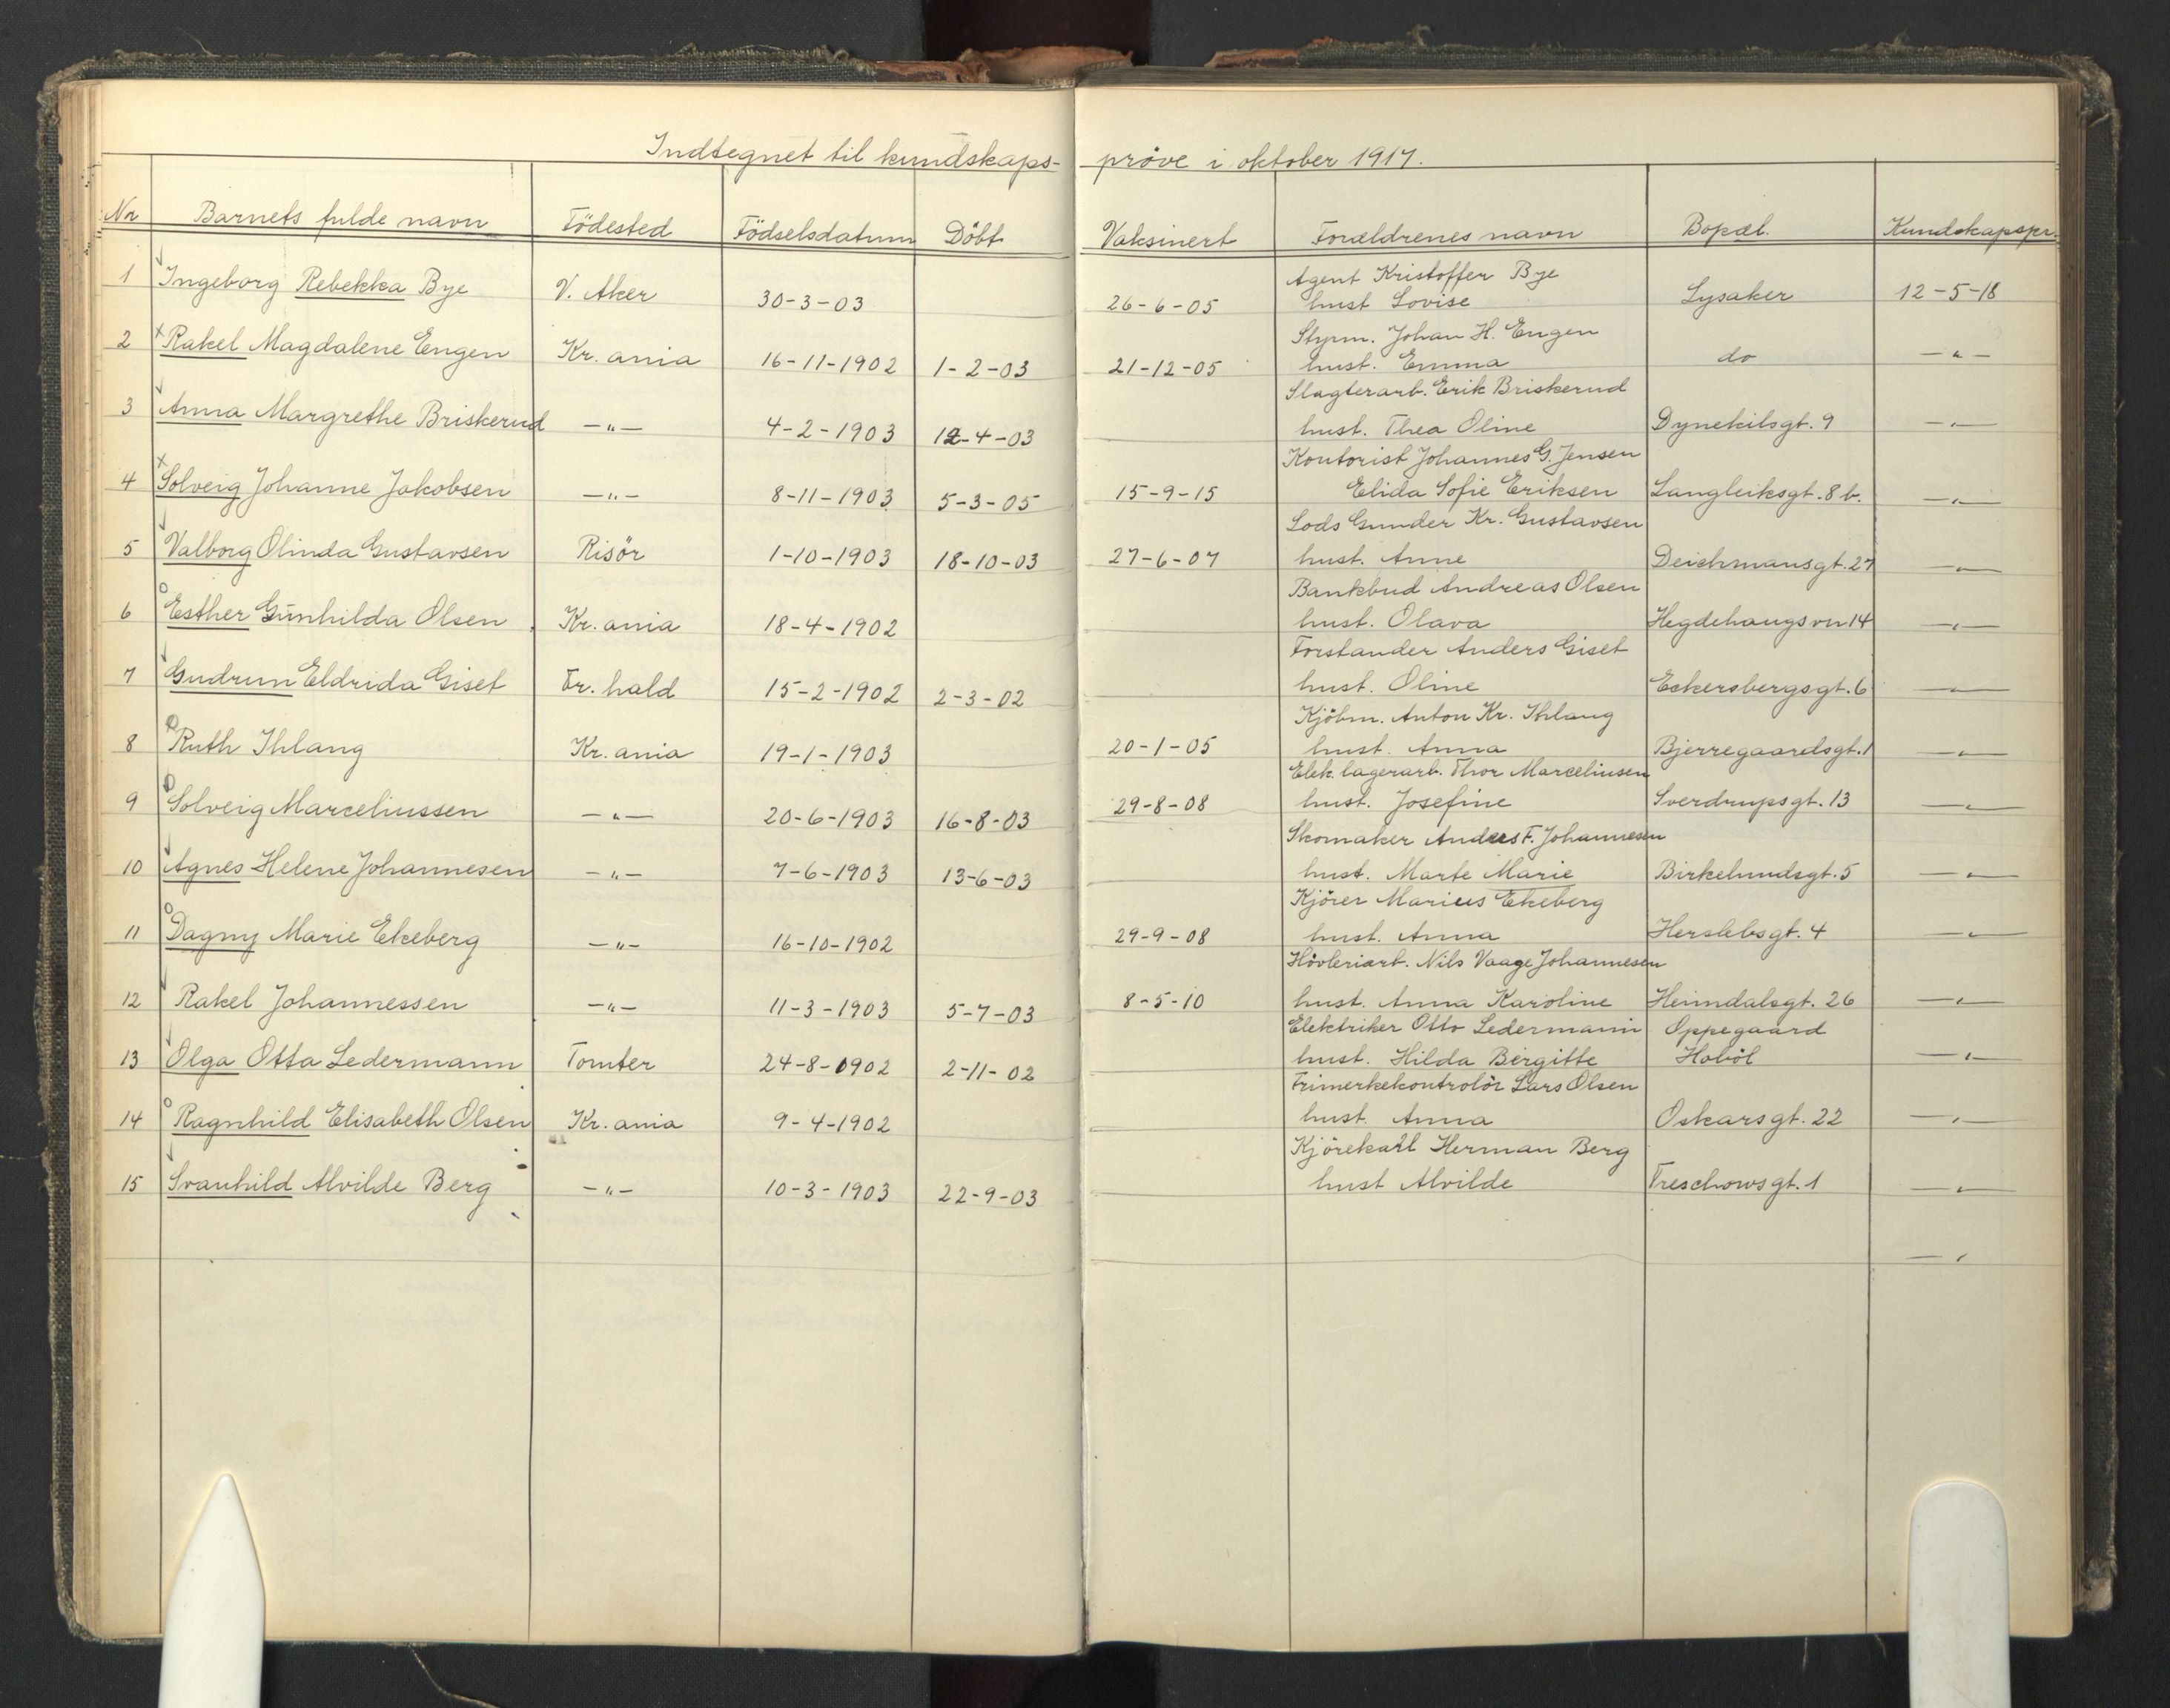 Indtegnet til kundskaps- pröve i oktober 1917.
Nr Barnets fulde navn Födested Födselsdatum Döbt Vaksinert Forældrenes navn Bopæl. Kundskapspr.
Agent Kristoffer Bye
1 Ingeborg Rebekka Bye V. Aker 30-3-03 26-6-05 hust Lovise Lysaker 12-5-18
Styrm. Johan H. Engen
2 Rakel Magdalene Engen Kr. ania 16-11-1902 1-2-03 21-12-05 hust. Emma do —"—
Slagterarb. Erik Briskerud
3 Anna Margrethe Briskerud —"— 4-2-1903 12-4-03 hust. Thea Oline Dynekilsgt. 9 —"—
Kontorist Johannes G. Jensen
4 Solveig Johanne Jakobsen —"— 8-11-1903 5-3-05 15-9-15 Elida Sofie Eriksen Langleiksgt. 8 b. —"—
Lods Gunder Kr. Gustavsen
5 Valborg Olinda Gustavsen Risör 1-10-1903 18-10-03 27-6-07 hust. Anne Deichmansgt. 27 —"—
Bankbud Andreas Olsen
6 Esther Gunhilda Olsen Kr. ania 18-4-1902 hust. Olava Hegdehaugsvn 14 —"—
Forstander Anders Giset
7 Gudrun Eldrida Giset Fr. hald 15-2-1902 2-3-02 hust. Oline Eckersbergsgt. 6 —"—
Kjöbm. Anton Kr. Ihlang
8 Ruth Ihlang Kr. ania 19-1-1903 20-1-05 hust. Anna Bjerregaardsgt. 1 —"—
Elek. lagerarb. Thor Marceliusen
9 Solveig Marceliussen —"— 20-6-1903 16-8-03 29-8-08 hust. Josefine Sverdrupsgt. 13 —"—
Skomaker Anders F. Johannesen
10 Agnes Helene Johannesen —"— 7-6-1903 13-6-03 hust. Marte Marie Birkelundsgt. 5 —"—
Kjörer Marius Ekeberg
11 Dagny Marie Ekeberg —"— 16-10-1902 29-9-08 hust. Anna Herslebsgt. 4 —"—
Hövleriarb. Nils Vaage Johannesen
12 Rakel Johannessen —"— 11-3-1903 5-7-03 8-5-10 hust. Anna Karoline Heimdalsgt. 26 —"—
Elektriker Otto Ledermann Oppegaard
13 Olga Otta Ledermann Tomter 24-8-1902 2-11-02 hust. Hilda Birgitte Haböl —"—
Frimerkekontrolör Lars Olsen
14 Ragnhild Elisabeth Olsen Kr. ania 9-4-1902 hust. Anna Oskarsgt. 22 —"—
Kjörekarl Herman Berg
15 Svanhild Alvilde Berg —"— 10-3-1903 22-9-03 hust Alvilde Treschowsgt. 1 —"—
—"